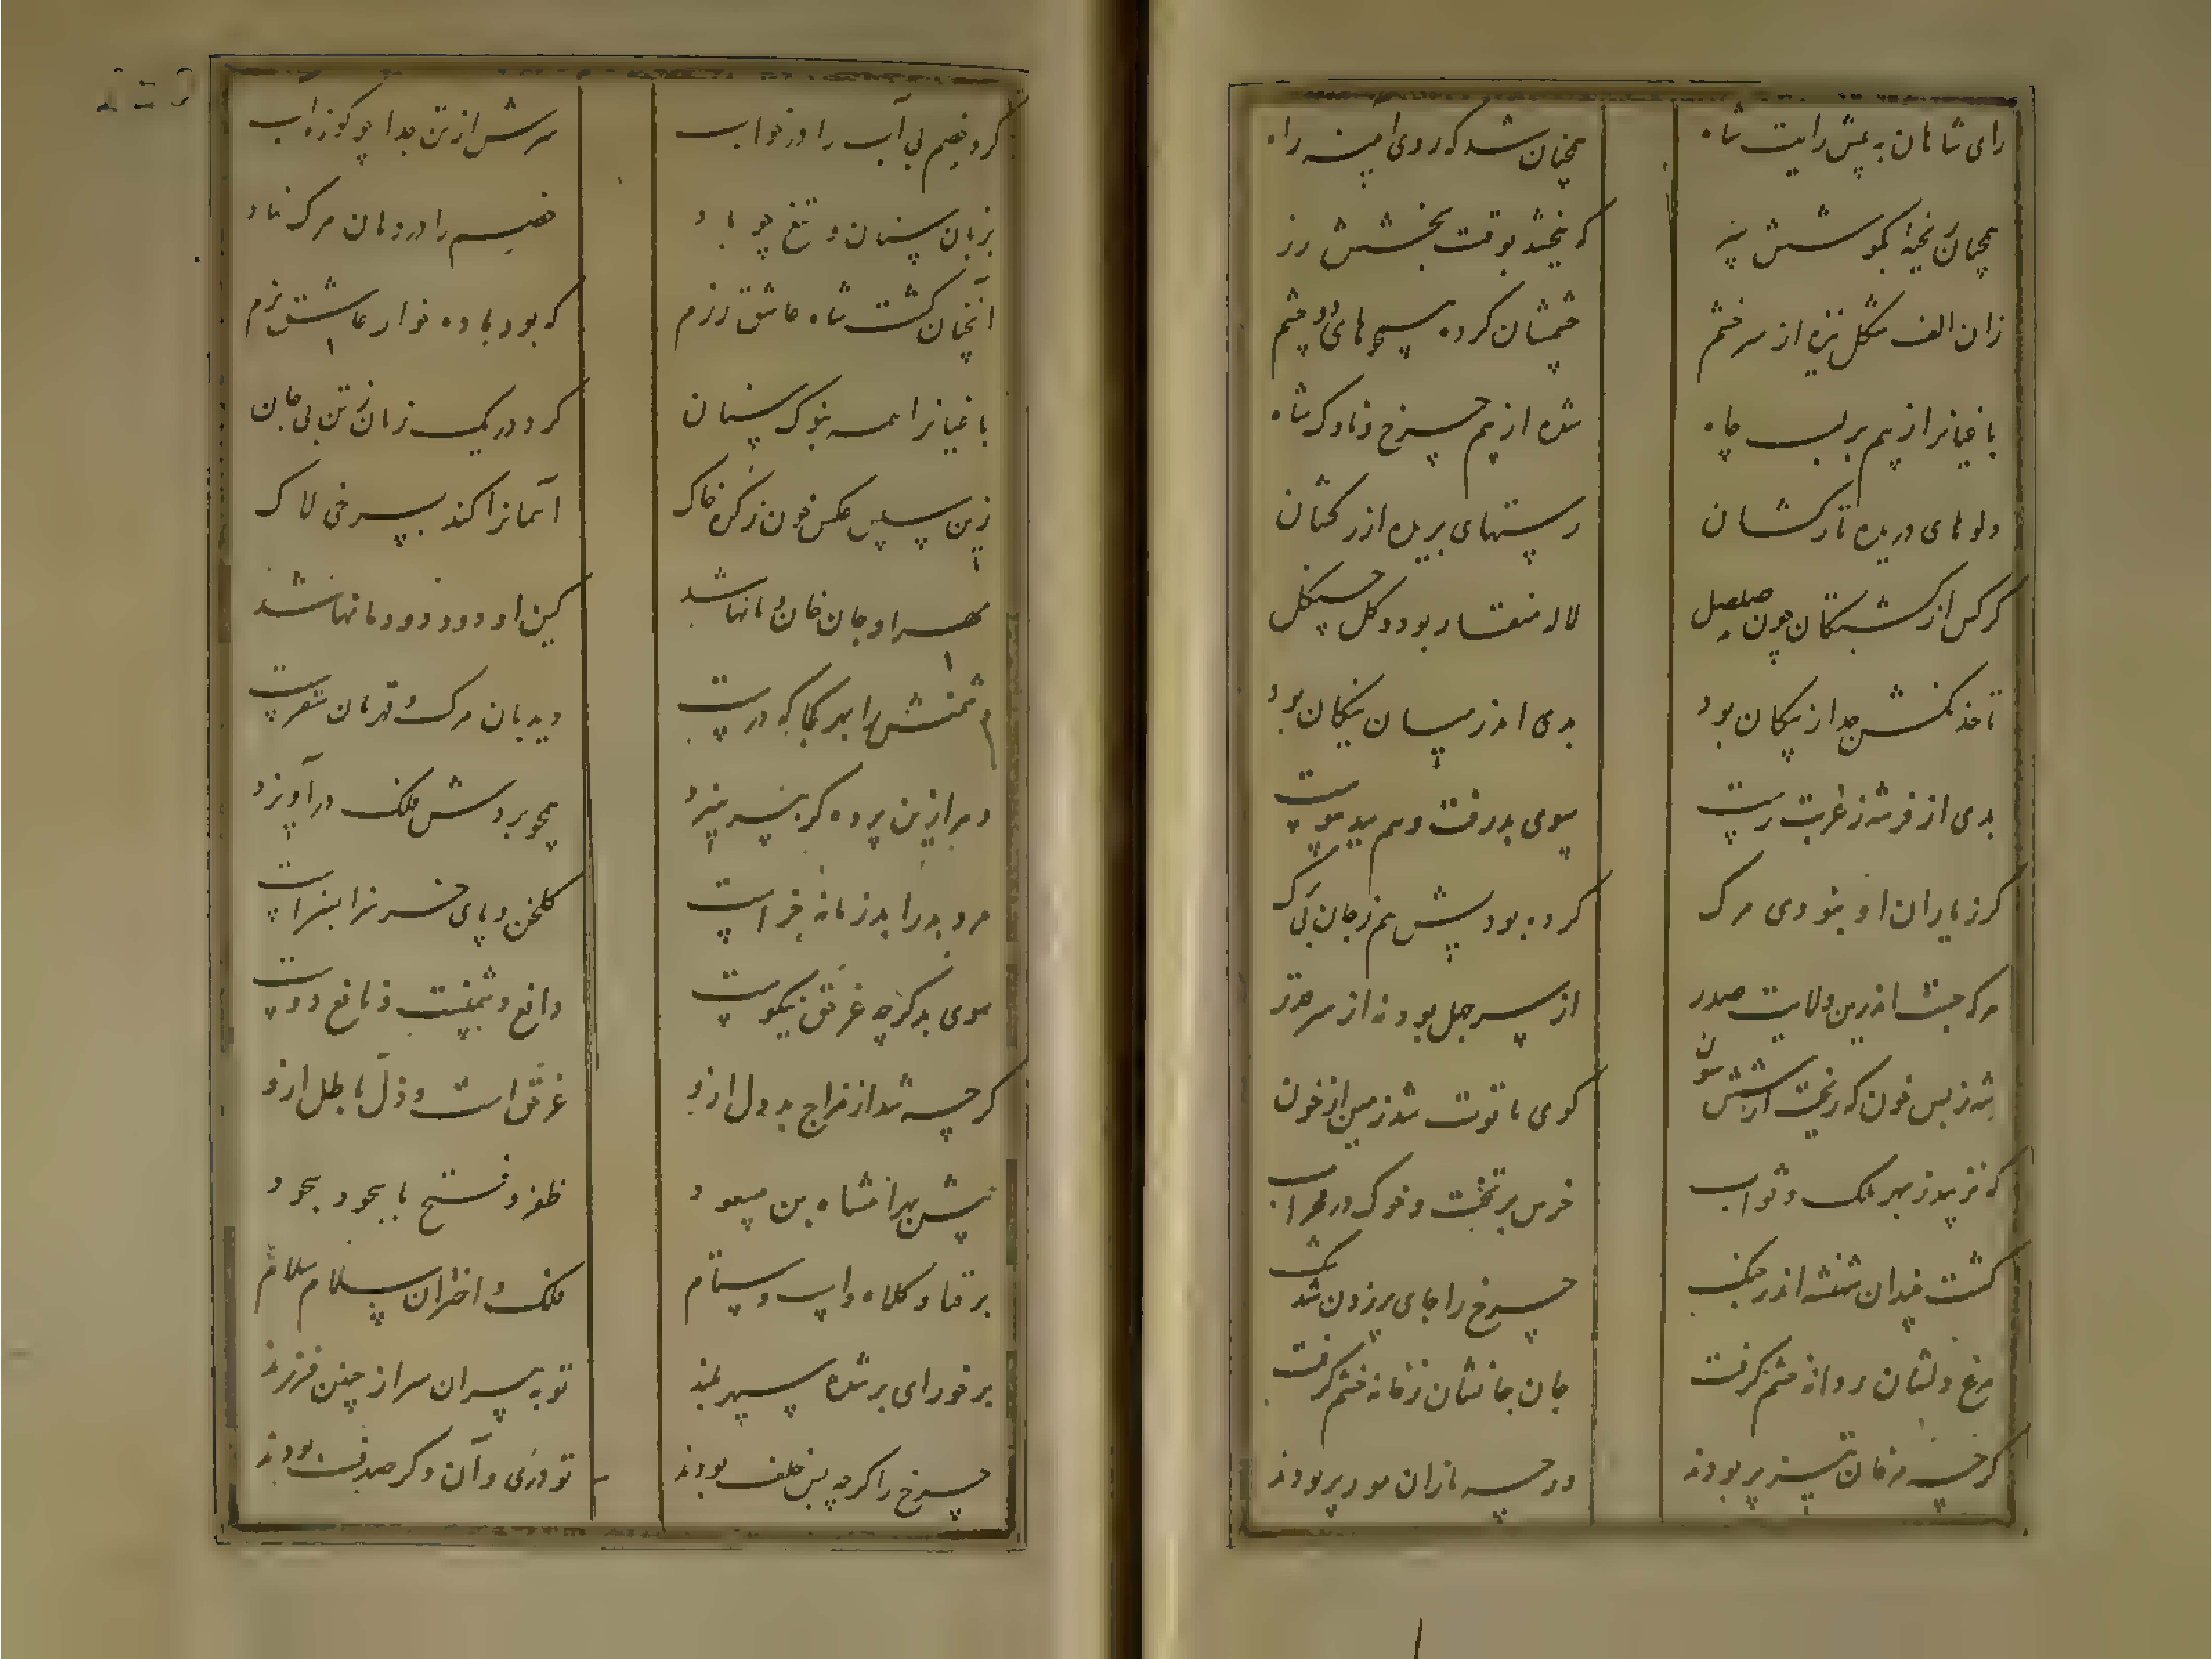 رای شاهان به پیش رایت شاه
همچنان شد که روی آینه راه
همچنان بخیه بکوشش
که ببخشد بوقت بخشش زر
زان الف شکل نیزه از سر خشم
چشمشان کرده همچو های دو چشم
باغیانرا ز بیم بر لب چاه
شده از بیم چرخ و ناوک شاه
دلوهای دریده تارکشان
رسنهای بریده از رکشان
کرکس از کشتگان چون صلصل
لاله منقار بود و گل چنگل
تا خدنگش جدا ز پیکان بود
بدی اندر میان نیکان بود
بدی از فر شه ز غربت رست
سوی بد رفت و هم بدو پیوست
گر ز یاران او نبودی مرگ
کرده بود پیش هم ز جان بی برگ
هر که جست اندرین ولایت صدر
از سر جهل بود نه از سر قدر
شه ز بس خون که ریخت از شش سون
گوی یاقوت شد زمین از خون
که نزیبد ز بهر ملک و ثواب
خرس بر تخت و خوک در محراب
گشت خندان شهنشه اندر جنگ
چرخ را جای بر زدن شد تنگ
مرغ دلشان روانه خشم گرفت
جان جانشان ز خانه خشم گرفت
گرچه مرغان تیز پر بودند
ورچه ماران مور پر بودند
کرد خصم بی آب را در خواب
سرش از تن جدا چو کوزه آب
بزبان سنان و تیغ چو باد
خصم را در دهان مرگ نهاد
آنچنان گشت شاه عاشق رزم
که بود باده خوار عاشق بزم
باغیانرا همه بنوک سنان
کرد در یک زمان ز تن بی جان
زین سپس عکس خون ز کره خاک
آسمانرا کند بسرخی لاک
مهر او جان خان و مانها شد
کین او دود دودمانها شد
دشمنش را بهر کجا که درست
دیدبان مرگ و قهرمان سقرست
دهر ازین پرده گر بپرهیزد
همچو بر دوش فلک درآویزد
مرد بد را بد زمانه جزاست
گلخن و پای خر سزا بسزاست
سوی بد گرچه غرقی نیکوست
دافع دشمنست و نافع دوست
گرچه شد از مزاج بد دل ازو
غرق است و ذل باطل ازو
پیش بهرامشاه بن مسعود
ظفر و فتح با سجود بجود
بر قبا و کلاه و اسب و ستام
فلک و اختران سلام سلام
برخور ای بر شده سپهر بلند
تو به پسران سر از چنین فرزند
چرخ را گرچه بس خلف بودند
تو دری و آن دگر صدف بودند